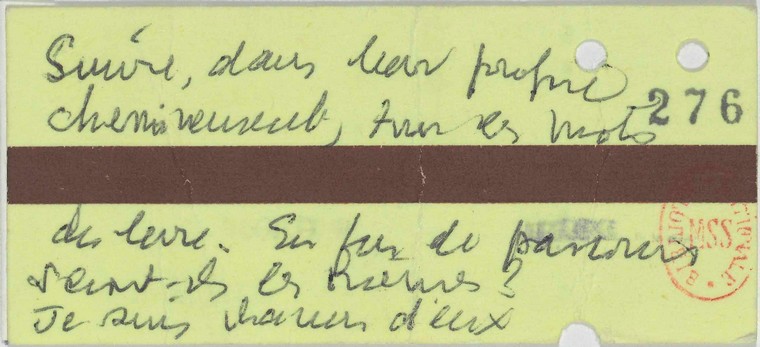 Suivre, dans leur propre
cheminement, tous les mots
276
du livre. En fin de parcours
seront-ils les mêmes ?
Je suis chacun d'eux
MSS